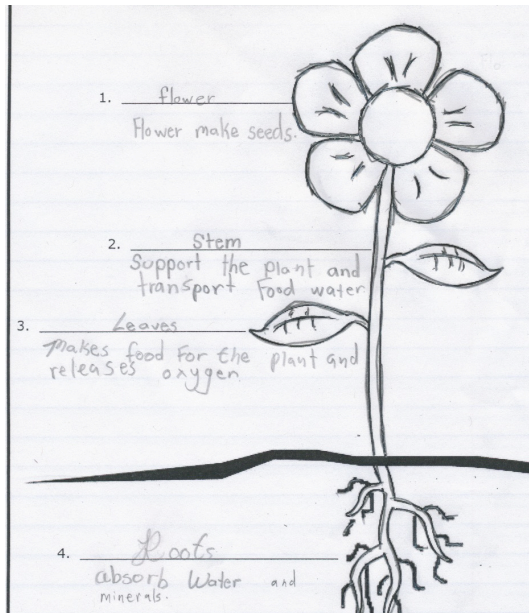 1. flower
Flower make seeds.
2. Stem
Support the plant and
transport Food water
3. Leaves
Makes food For the plant and
releases oxygen
4. Roots
absorb Water and
minerals.